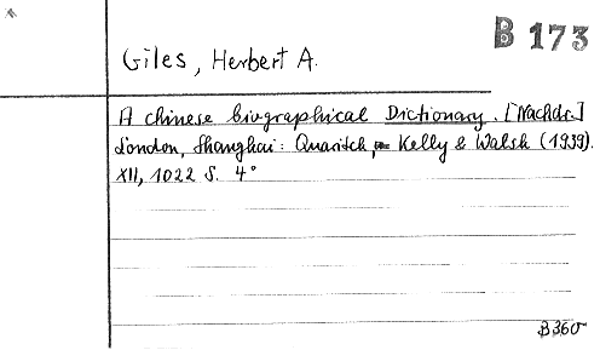 B 173
Giles, Herbert A.
A chinese biographical Dictionary. [Nachdr.]
London, Shanghai: Quaritch, Kelly & Walsh (1939).
XII, 1022 S. 4°
B360